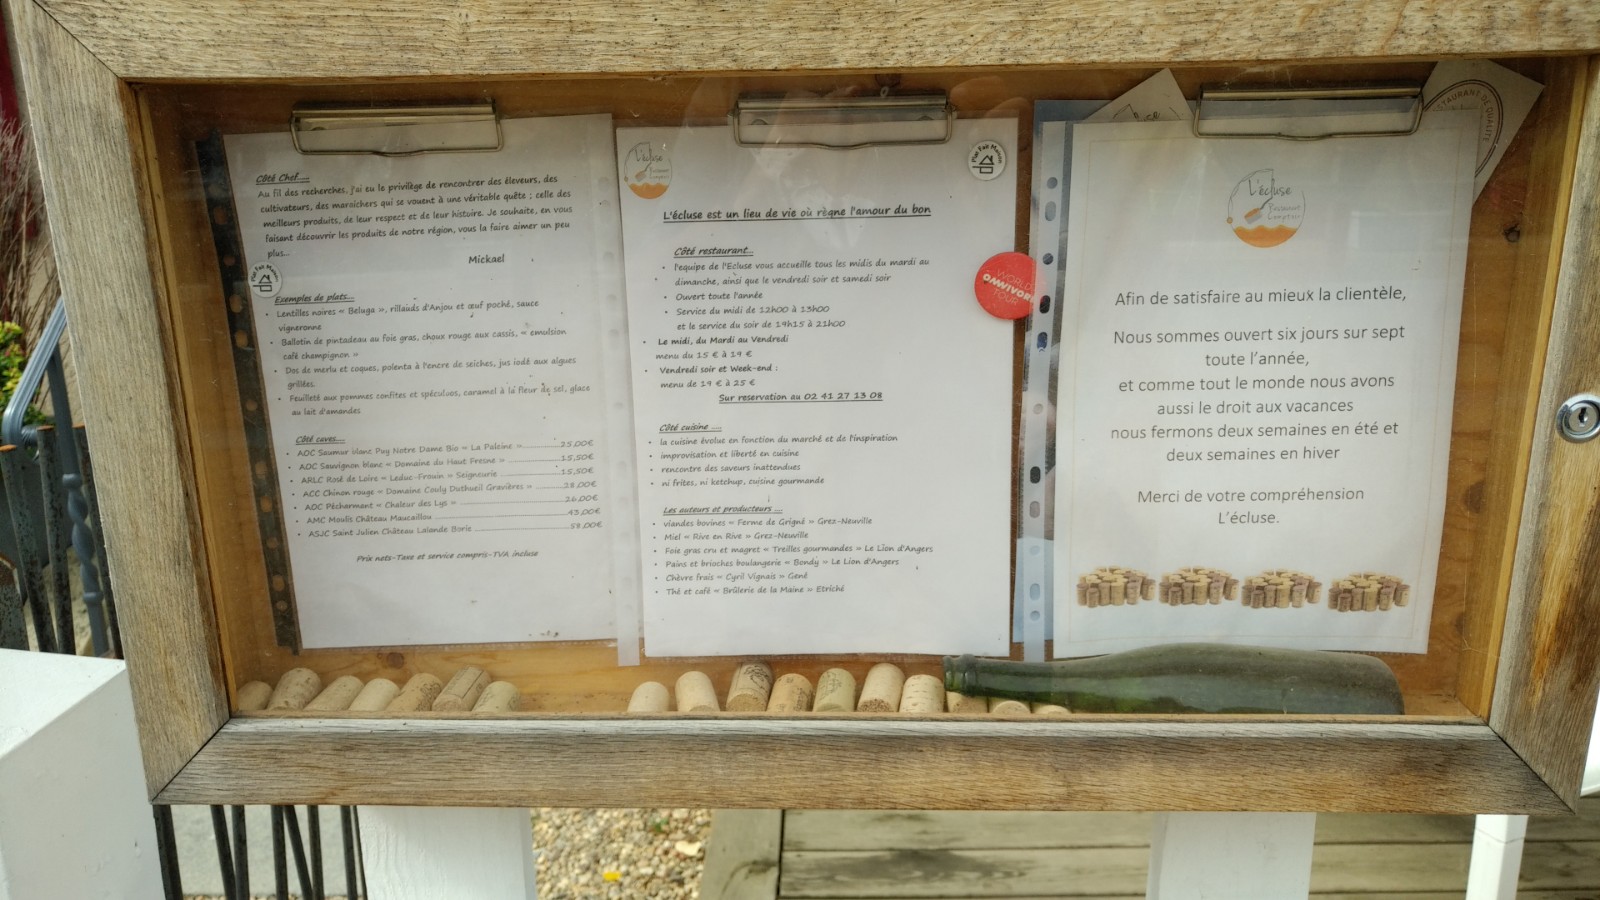 Côté Chef....
Au fil des recherches, j'ai eu le privilège de rencontrer des éleveurs, des
cultivateurs, des maraichers qui se vouent à une véritable quête ; celle des
meilleurs produits, de leur respect et de leur histoire. Je souhaite, en vous
faisant découvrir les produits de notre région, vous la faire aimer un peu
plus...
Mickael
Plat Fait Maison
Exemples de plats...
Lentilles noires « Beluga », rillauds d'Anjou et œuf poché, sauce
vigneronne
Ballotin de pintadeau au foie gras, choux rouge aux cassis, « emulsion
café champignon »
Dos de merlu et coques, polenta à l'encre de seiches, jus iodé aux algues
grillées.
Feuilleté aux pommes confites et spéculuos, caramel à la fleur de sel, glace
au lait d'amandes
Côté caves....
AOC Saumur blanc Puy Notre Dame Bio « La Paleine » 25,00€
AOC Sauvignon blanc « Domaine du Haut Fresne » 15,50€
ARLC Rosé de Loire « Leduc-Frouin » Seigneurie 15,50€
ACC Chinon rouge « Domaine Couly Dutheuil Gravières » 28,00€
AOC Pécharmant « Chaleur des Lys » 26,00€
AMC Moulis Château Maucaillou 43,00€
ASJC Saint Julien Château Lalande Borie 58,00€
Prix nets-Taxe et service compris-TVA incluse
L'écluse
Restaurant
Comptoir
Plat Fait Maison
L'écluse est un lieu de vie où règne l'amour du bon
Côté restaurant...
l'equipe de l'Ecluse vous accueille tous les midis du mardi au
dimanche, ainsi que le vendredi soir et samedi soir
Ouvert toute l'année
Service du midi de 12h00 à 13h00
et le service du soir de 19h15 à 21h00
Le midi, du Mardi au Vendredi
menu du 15 € à 19 €
Vendredi soir et Week-end :
menu de 19 € à 25 €
Sur reservation au 02 41 27 13 08
Côté cuisine ....
la cuisine évolue en fonction du marché et de l'inspiration
improvisation et liberté en cuisine
rencontre des saveurs inattendues
ni frites, ni ketchup, cuisine gourmande
Les auteurs et producteurs ....
viandes bovines « Ferme de Grigné » Grez-Neuville
Miel « Rive en Rive » Grez-Neuville
Foie gras cru et magret « Treilles gourmandes » Le Lion d'Angers
Pains et brioches boulangerie « Bondy » Le Lion d'Angers
Chèvre frais « Cyril Vignais » Gené
Thé et café « Brûlerie de la Maine » Etriché
WORLD
OMNIVORE
TOUR
RESTAURANT DE QUALITÉ
L'écluse
Restaurant
Comptoir
Afin de satisfaire au mieux la clientèle,
Nous sommes ouvert six jours sur sept
toute l'année,
et comme tout le monde nous avons
aussi le droit aux vacances
nous fermons deux semaines en été et
deux semaines en hiver
Merci de votre compréhension
L'écluse.